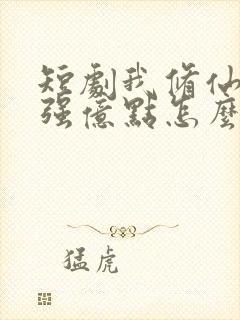 短劇我修仙
强億點怎麼
猛虎